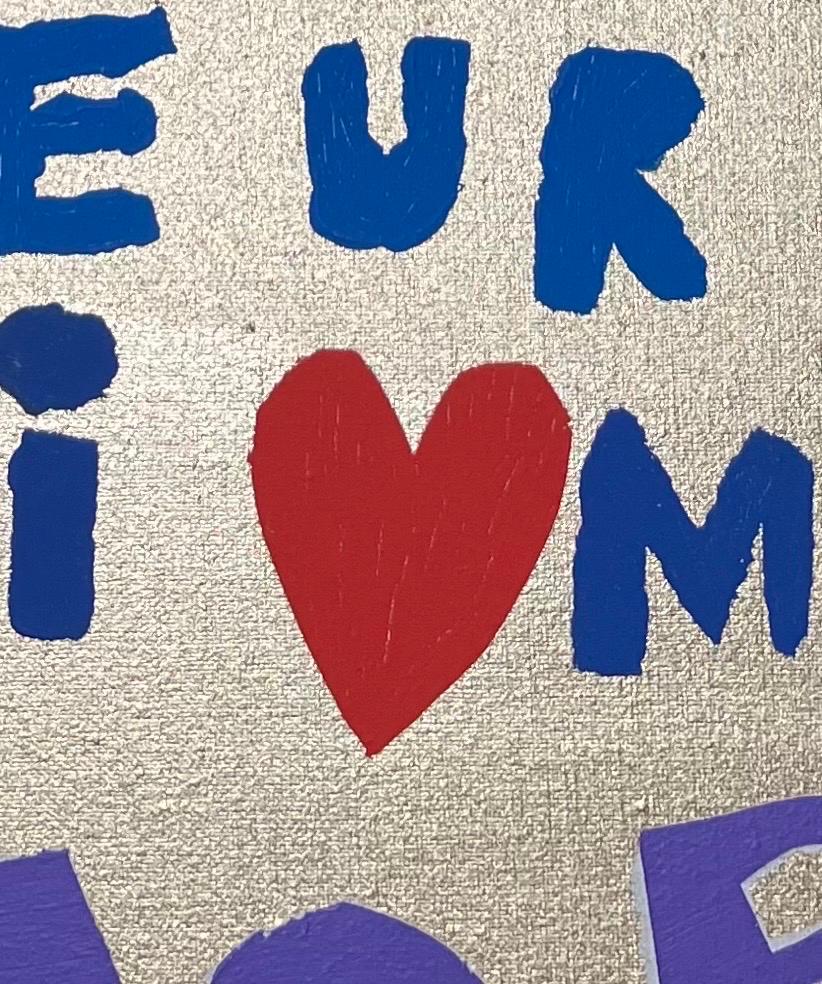 EUR
i ♥ M